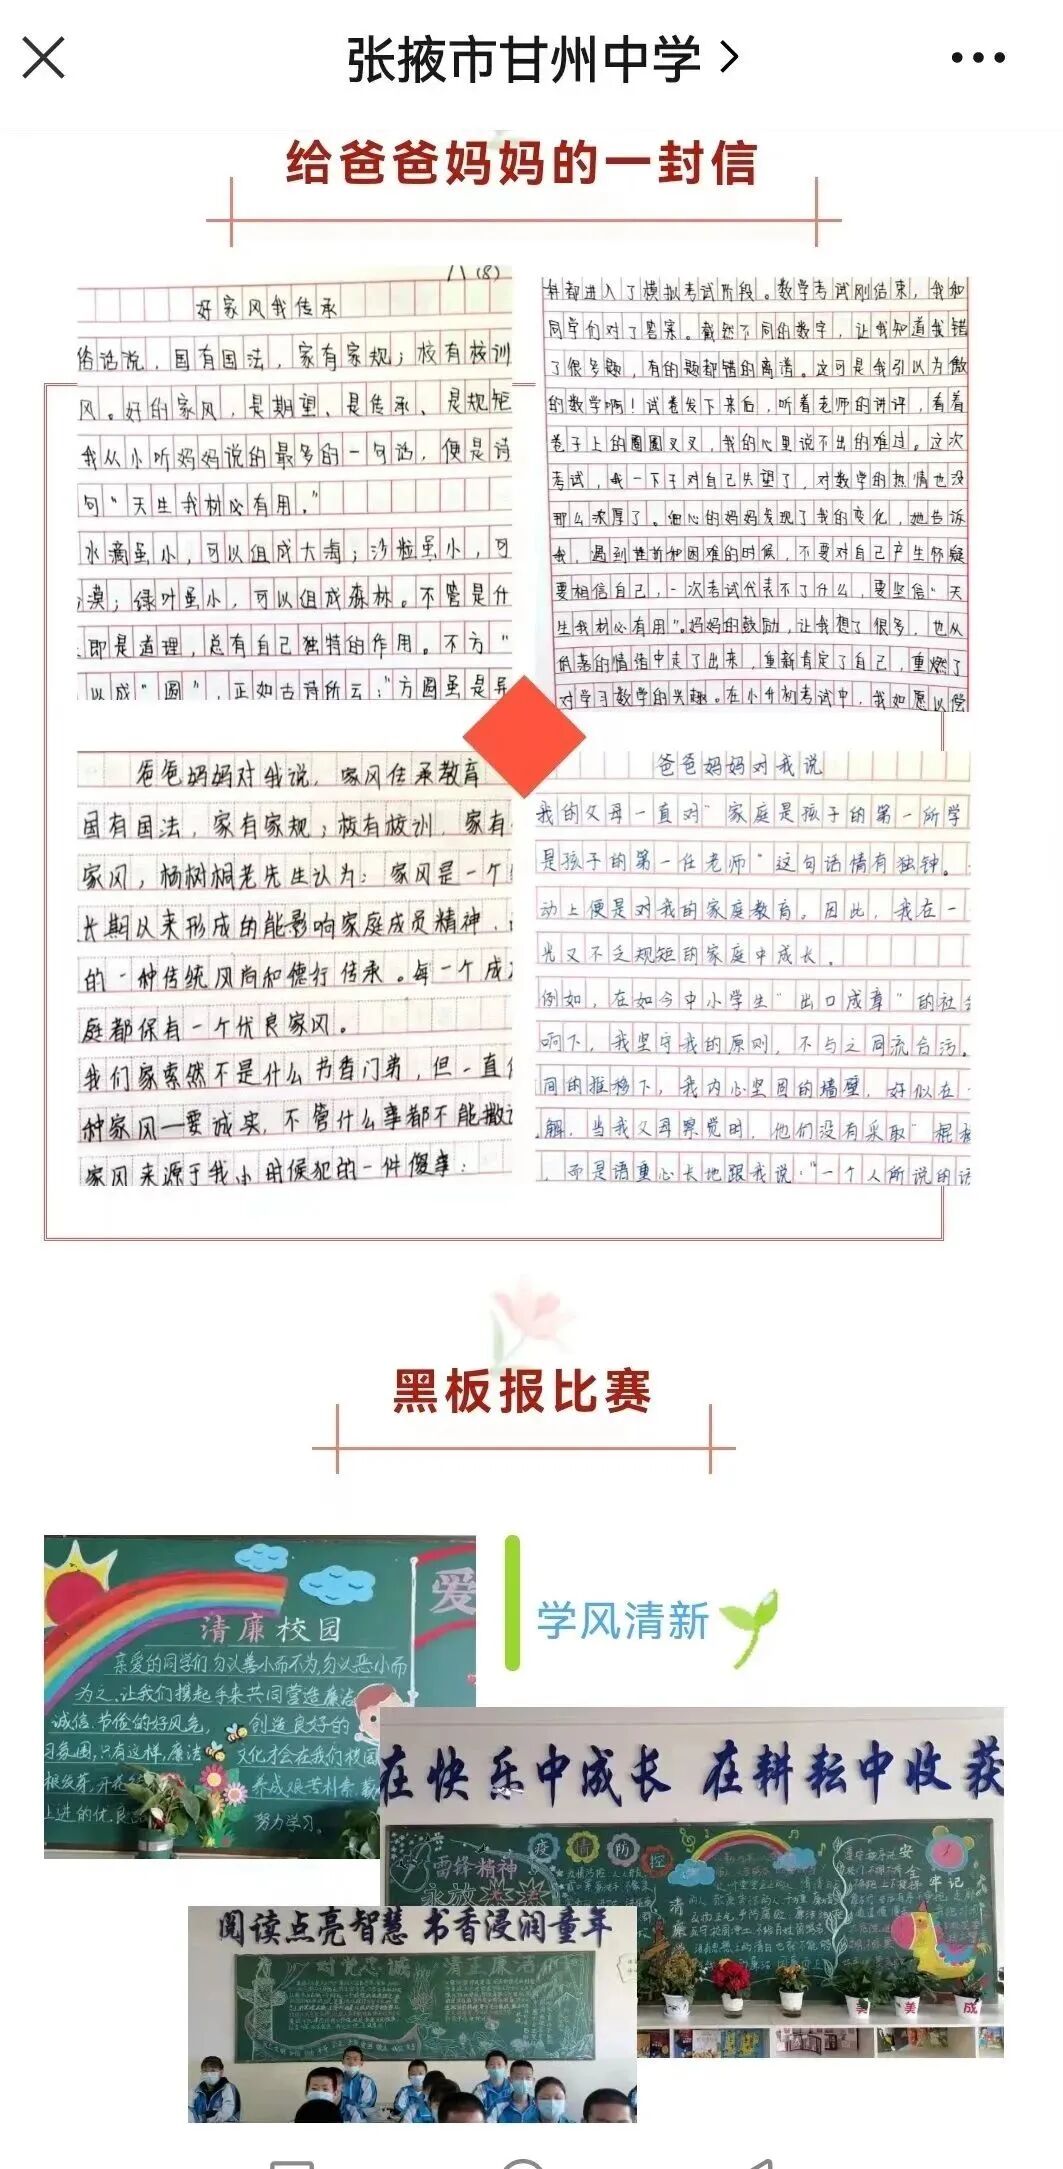 张掖市甘州中学
给爸爸妈妈的一封信
八(8)
好家风我传承
俗话说，国有国法，家有家规；校有校训
风。好的家风，是期望、是传承、是规矩
我从小听妈妈说的最多的一句话，便是诗
句“天生我材必有用。”
水滴虽小，可以组成大海；沙粒虽小，可
漠；绿叶虽小，可以组成森林。不管是什
即是道理，总有自己独特的作用。不方“
以成“圆”，正如古诗所云：“方圆虽是异
都进入了模拟考试阶段。数学考试刚结束，我和
同学们对了答案。截然不同的数字，让我知道我错
了很多题，有的题都错的离谱。这可是我引以为傲
的数学啊！试卷发下来后，听着老师的讲评，看着
卷子上的圈圈叉叉，我的心里说不出的难过。这次
考试，我一下子对自己失望了，对数学的热情也没
那么浓厚了。细心的妈妈发现了我的变化，她告诉
我，遇到挫折和困难的时候，不要对自己产生怀疑
要相信自己，一次考试代表不了什么，要坚信“天
生我材必有用”。妈妈的鼓励，让我想了很多，也从
低落的情绪中走了出来，重新肯定了自己，重燃了
对学习数学的兴趣。在小升初考试中，我如愿以偿
爸爸妈妈对我说，家风传承教育
国有国法，家有家规；校有校训，家有
家风，杨树桐老先生认为：家风是一个
长期以来形成的能影响家庭成员精神、
的一种传统风尚和德行传承。每一个成
庭都保有一个优良家风。
我们家索然不是什么书香门弟，但一直
种家风—要诚实，不管什么事都不能撒
家风来源于我小时候犯的一件傻事：
爸爸妈妈对我说
我的父母一直对“家庭是孩子的第一所学
是孩子的第一任老师”这句话情有独钟。
动上便是对我的家庭教育。因此，我在一
光又不乏规矩的家庭中成长。
例如，在如今中小学生“出口成章”的社
响下，我坚守我的原则，不与之同流合污。
间的推移下，我内心坚固的墙壁，好似在
解，当我父母察觉时，他们没有采取“棍
而是语重心长地跟我说：“一个人所说的话
黑板报比赛
学风清新
爱
清廉校园
亲爱的同学们勿以善小而不为，勿以恶小而
为之，让我们携起手来共同营造廉洁
诚信、节俭的好风气， 创造良好的
习氛围，只有这样，廉洁 文化才会在我们校园
根发芽，开花 养成艰苦朴素
上进的优良 努力学习。
在快乐中成长 在耕耘中收获
雷锋精神
永放
疫情防控
清廉
安全牢记
美 美 成
阅读点亮智慧 书香浸润童年
对党忠诚 清正廉洁